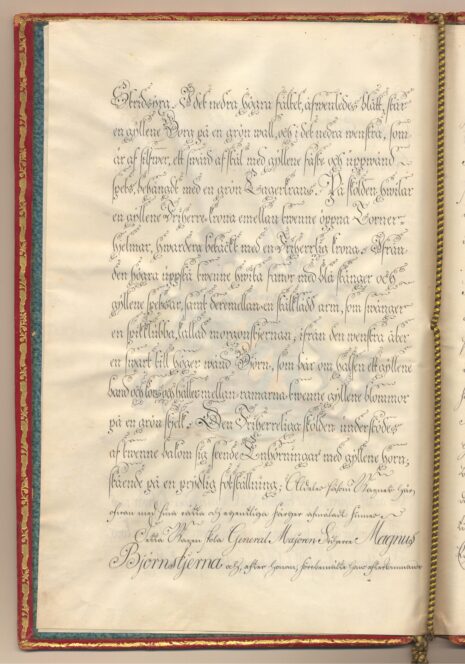 Stridsyra. I det nedra högra fältet, äfvenledes blått, står
en gyllene Borg på en grön wall, och i det nedra wenstra, som
är af silfwer, ett swärd af stål med gyllene fäste och uppwänd
spets, behängdt med en grön Lagerkrans. På skölden hwilar
en gyllene Friherre-krona emellan twenne öppna Torner-
hjelmar, hwardera betäckt med en Friherrlig krona. Ifrån
den högra uppstå twenne hwita fanor med blå stänger och
gyllene spetsar, samt deremellan en stålklädd arm, som swänger
en spikklubba, kallad morgonstjernan; ifrån den wenstra åter
en swart till höger wänd Björn, som bär om halsen ett gyllene
band och håller mellan ramarna twenne gyllene blommor
på en grön stjelk. Den Friherrliga skölden understödes
af twenne bakom sig seende Enhörningar med gyllene horn,
stående på en prydlig fotställning; Aldeles såsom Wapnet här,
ofvan med sina rätta och egentliga färgor afmåladt finnes.
Detta Wapen skola General Majoren Friherre Magnus
Björnstjerna och, efter honom, hans efterkommande